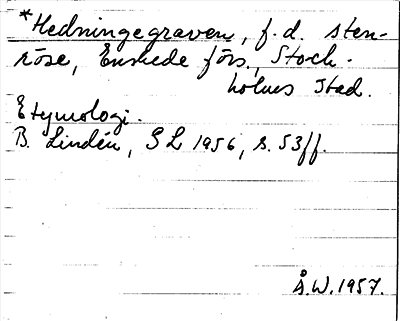 *Hedningegraven, f.d. sten-
röse, Enskede förs., Stock-
holms stad.
Etymologi.
B. Lindén, GL 1956, s. 53ff.
Å.W. 1957.